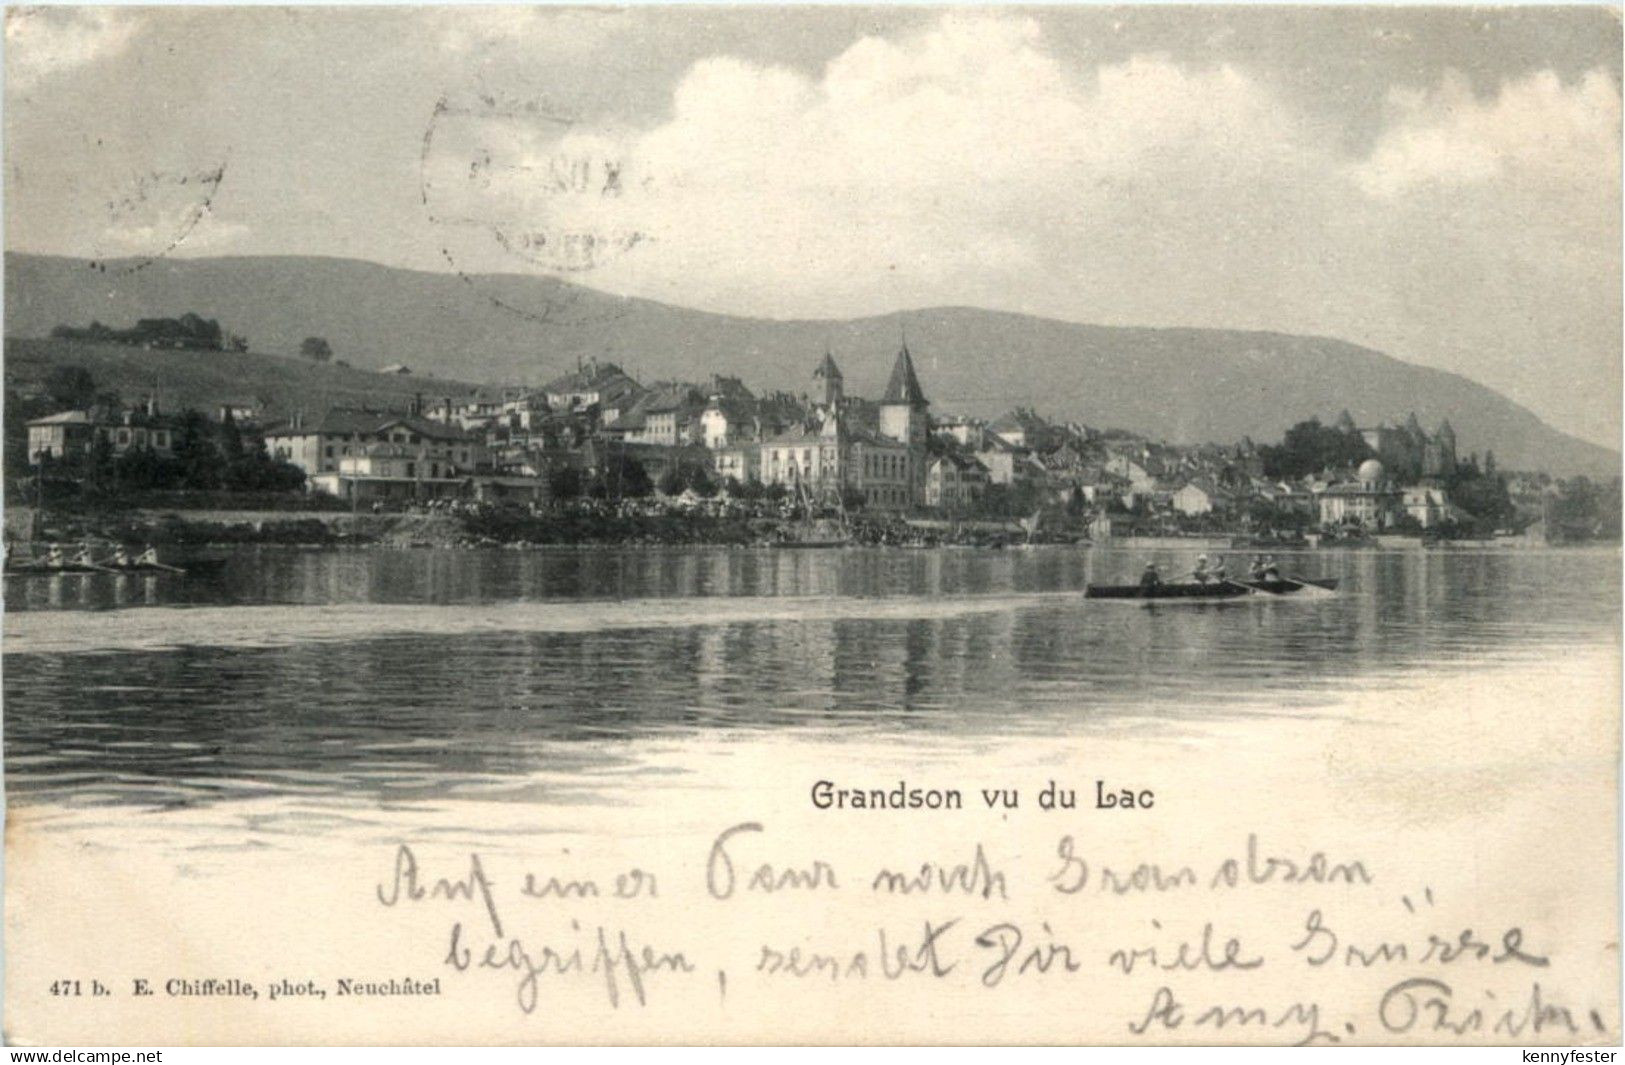 X 02
Grandson vu du Lac
Auf einer Tour nach Grandson
begriffen, sendet Dir viele Grüsse
Amy.
471 b. E. Chiffelle, phot., Neuchâtel
www.delcampe.net
kennyfester